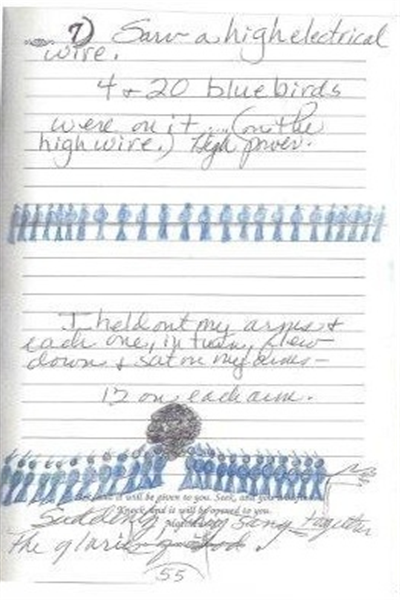 7) Saw a high electrical
wire.
4 + 20 bluebirds
were on it ... (on the
high wire.) High power.
I held out my arms +
each one, in turn, flew
down + sat on my arms –
12 on each arm.
it will be given to you. Seek, and you will find.
Knock, and it will be opened to you.
Suddenly, they sang together
The glories of God.
55